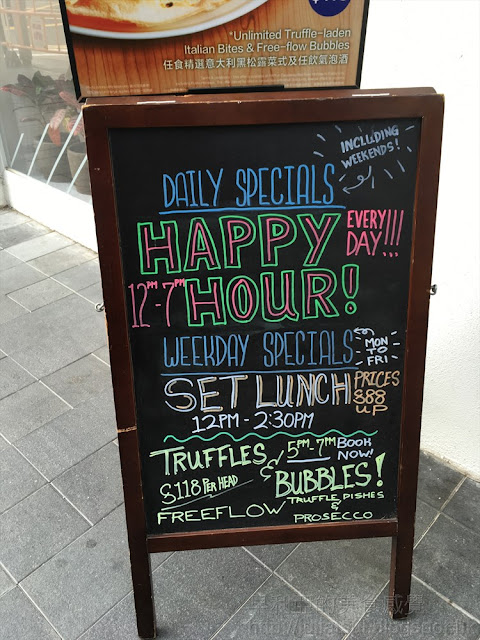 *Unlimited Truffle-laden
Italian Bites & Free-flow Bubbles
任食精選意大利黑松露菜式及任飲氣泡酒
INCLUDING
WEEKENDS!
DAILY SPECIALS
HAPPY
EVERY
DAY!!!
12PM-7PM HOUR!
WEEKDAY SPECIALS
MON
TO
FRI
SET LUNCH
PRICES
$88
UP
12PM - 2:30PM
TRUFFLES &
5PM-7PM BOOK
NOW!
$118 PER HEAD
BUBBLES!
FREEFLOW
TRUFFLE DISHES
&
PROSECCO